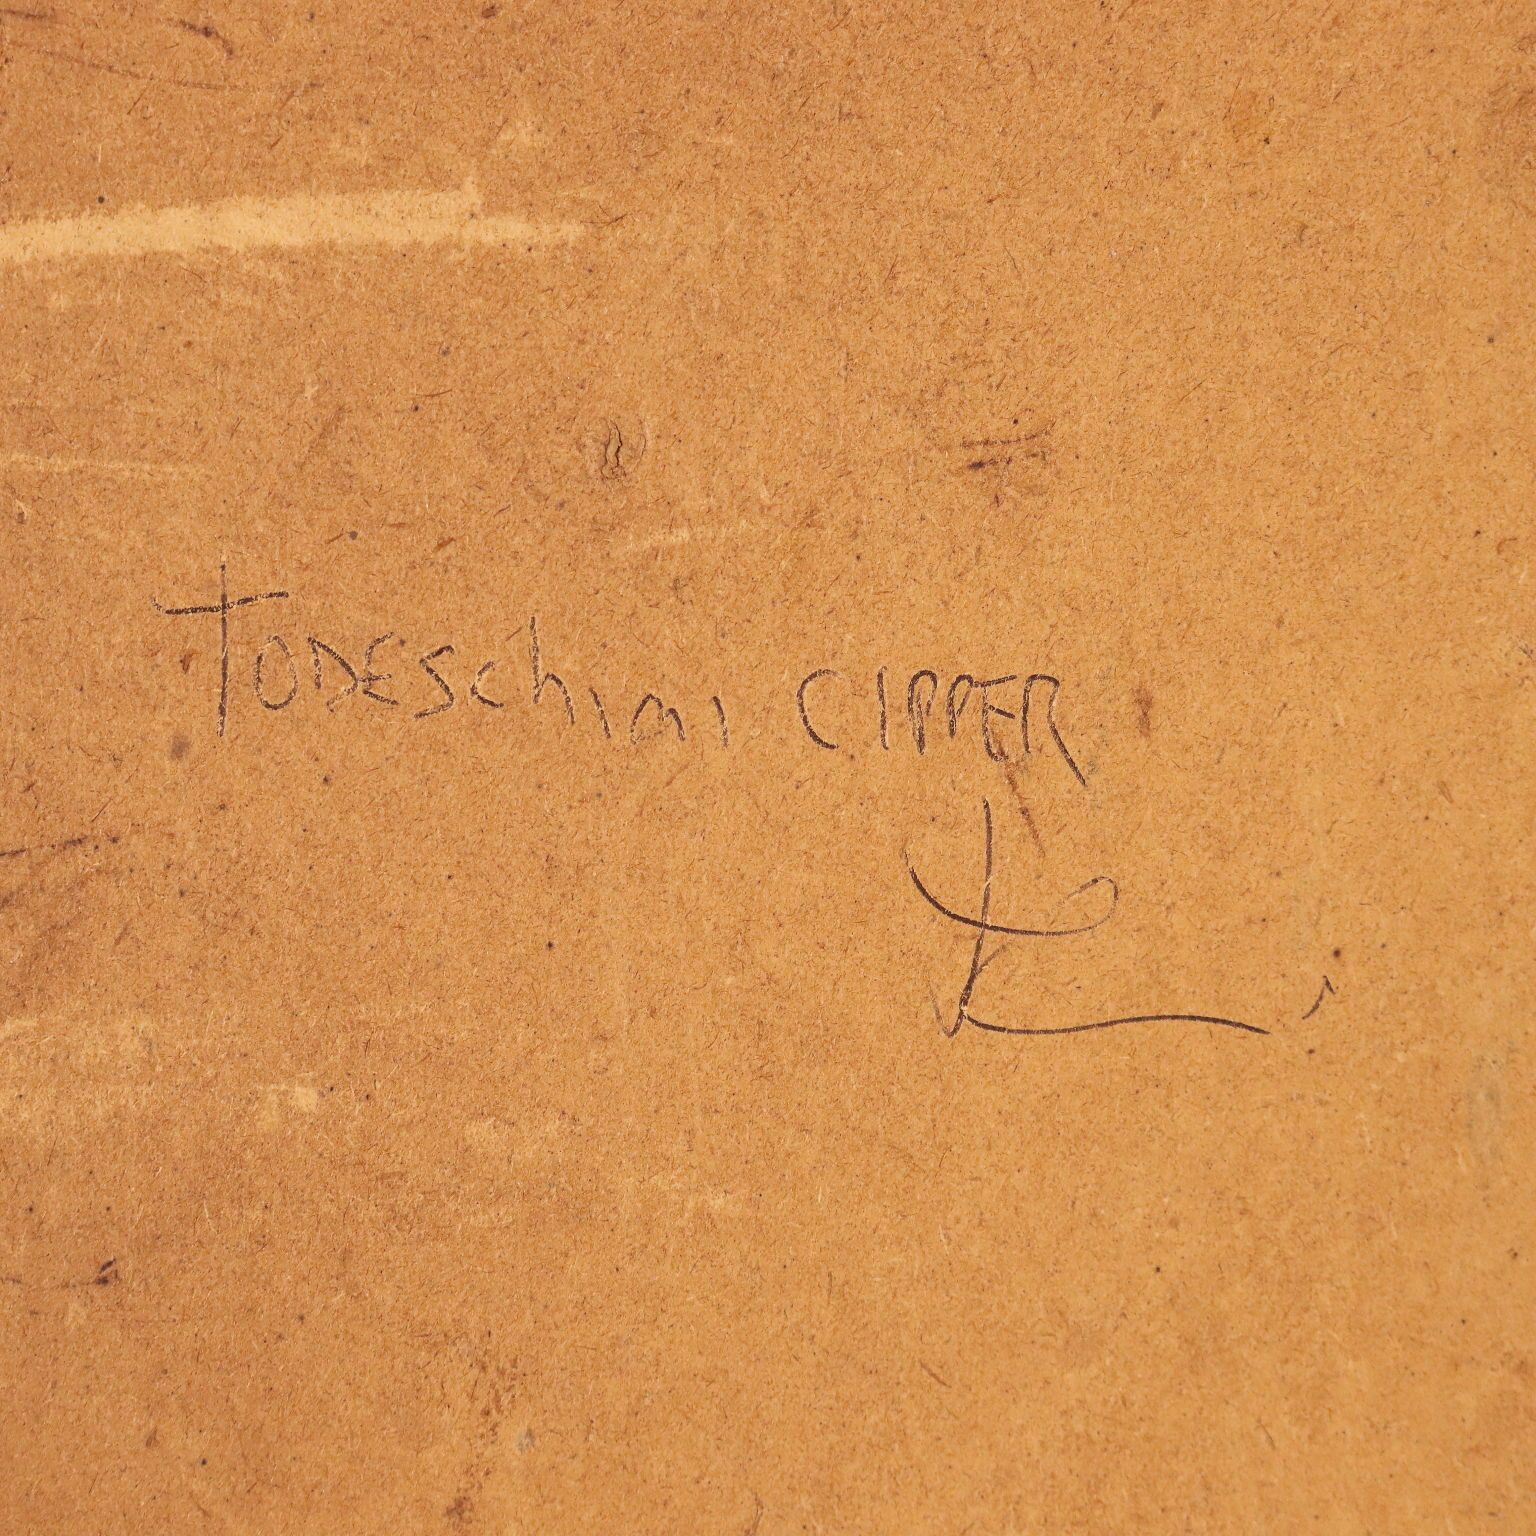 TODESchini CIPPER